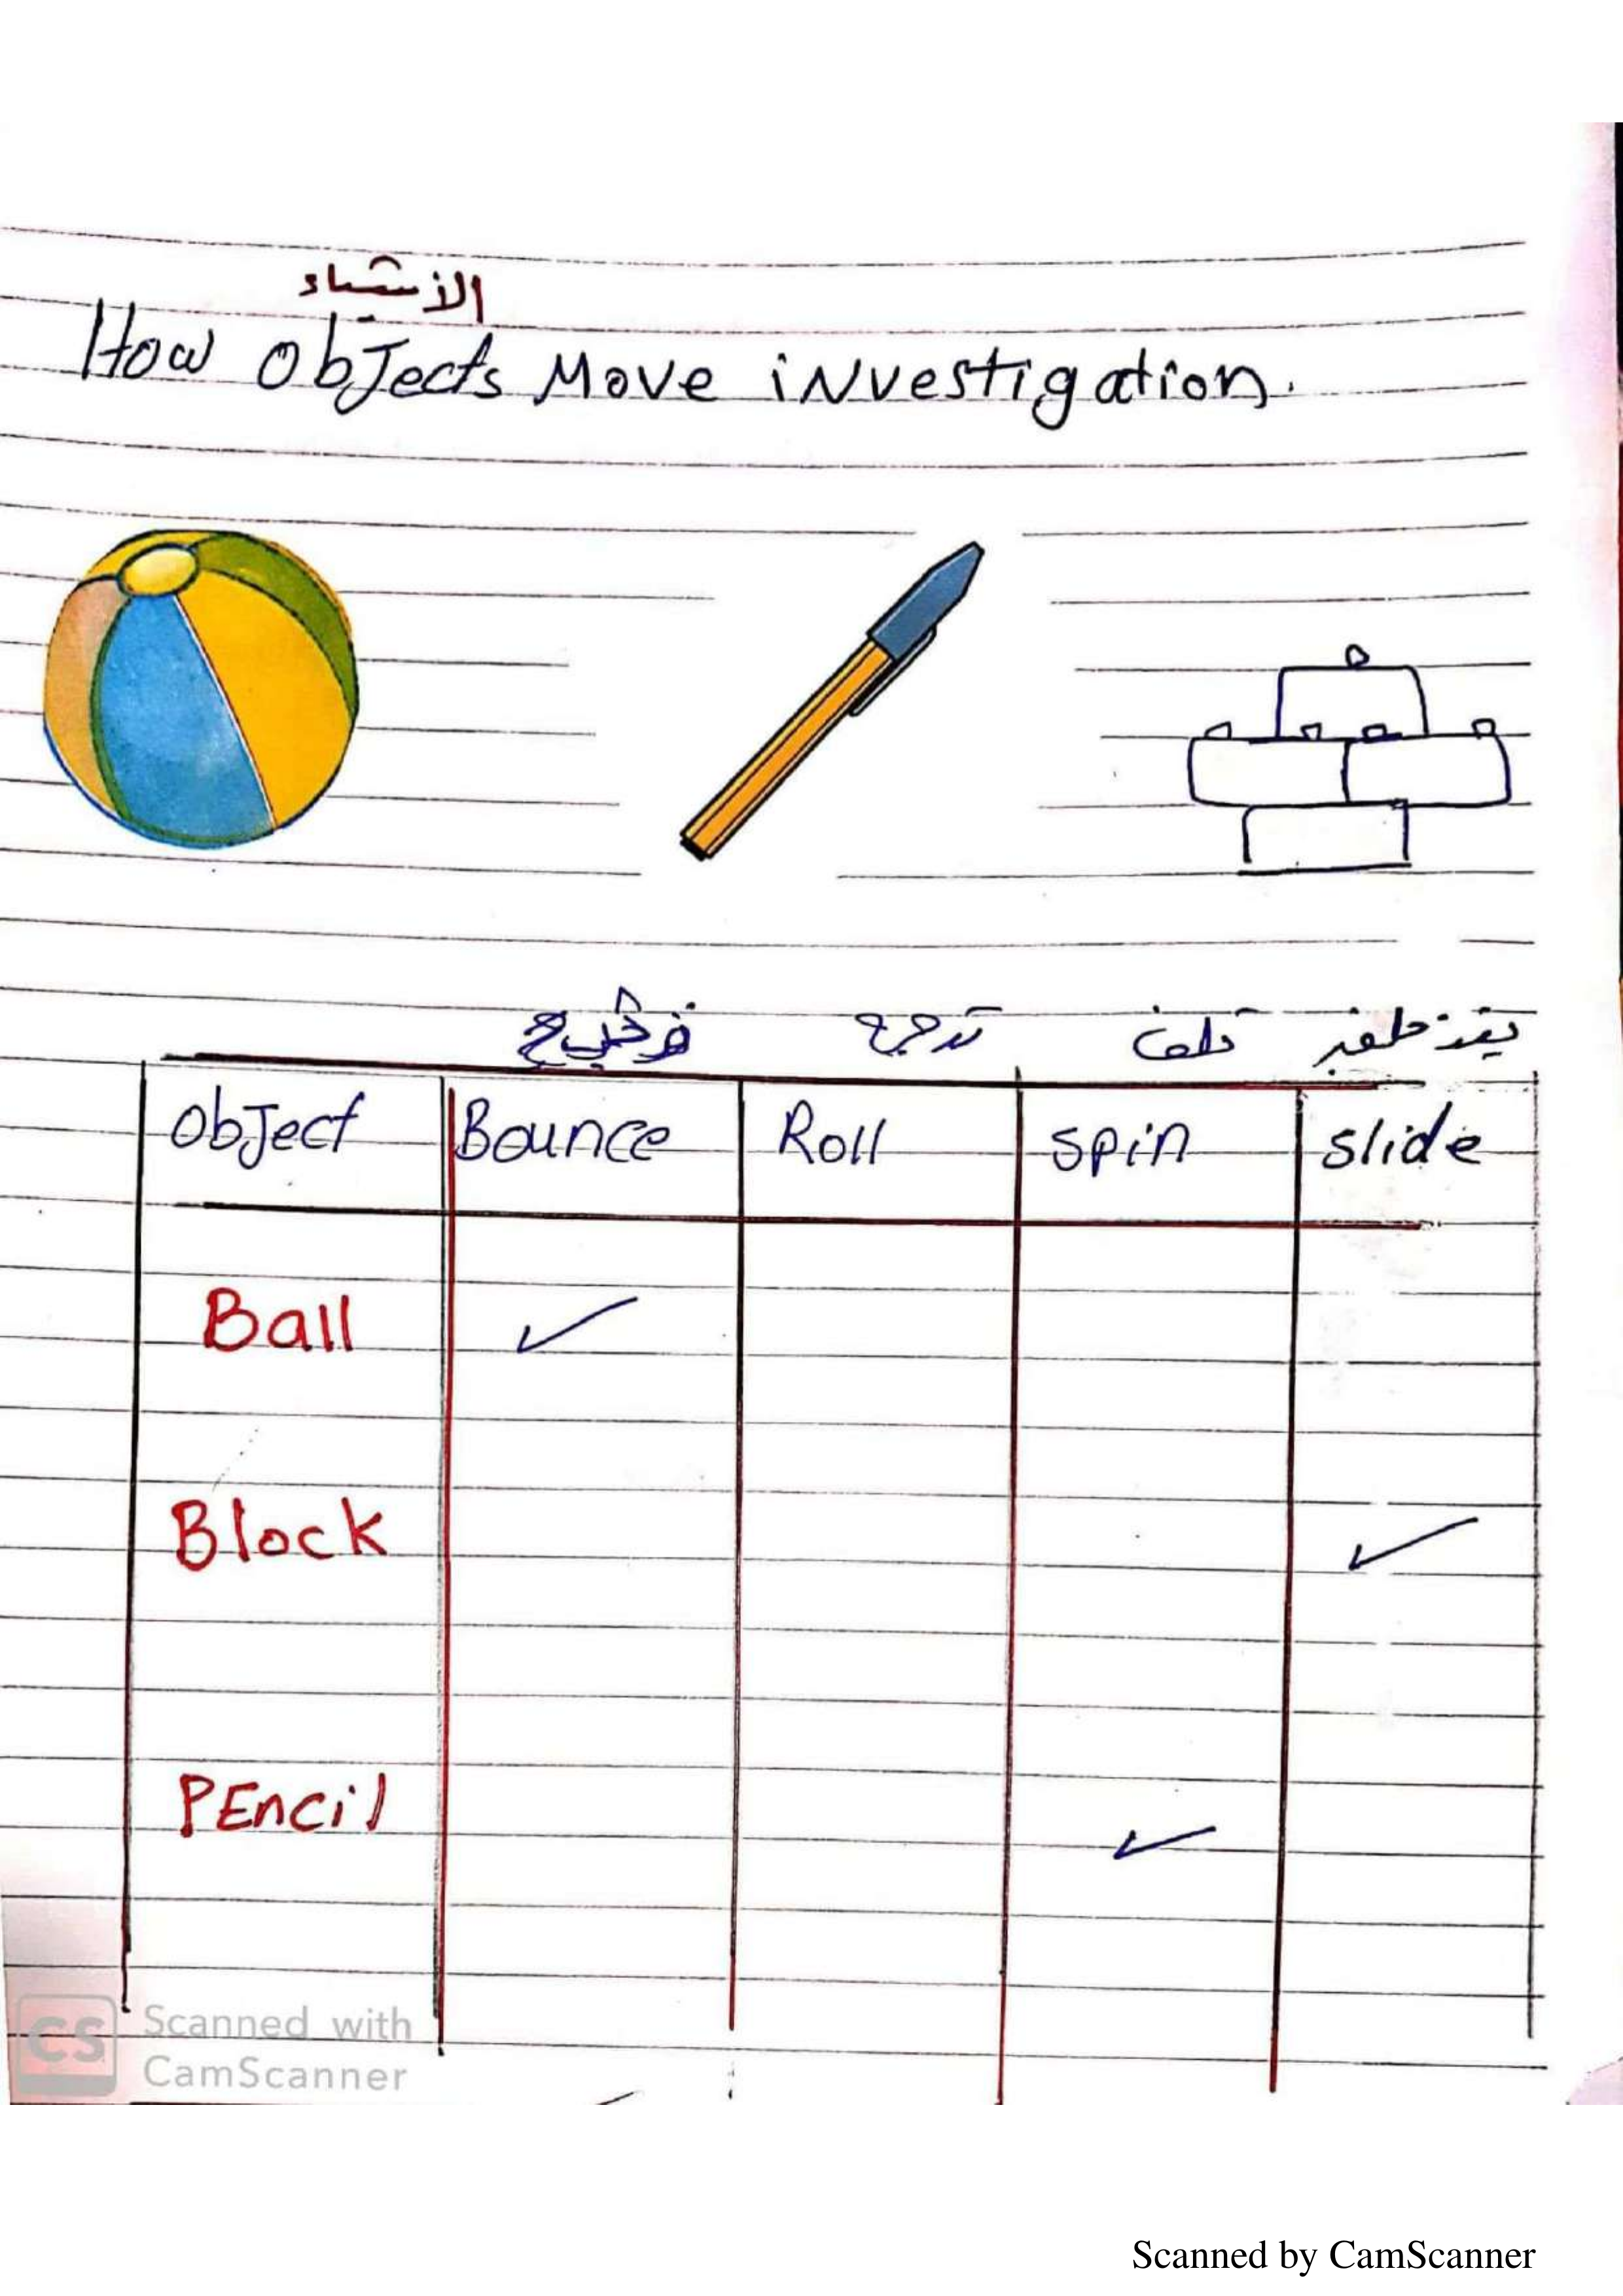 الأشياء
How Objects Move investigation.
تدحرج تلف
Object Bounce Roll spin slide
Ball ✓
Block ✓
PEncil ✓
CS Scanned with
CamScanner
Scanned by CamScanner